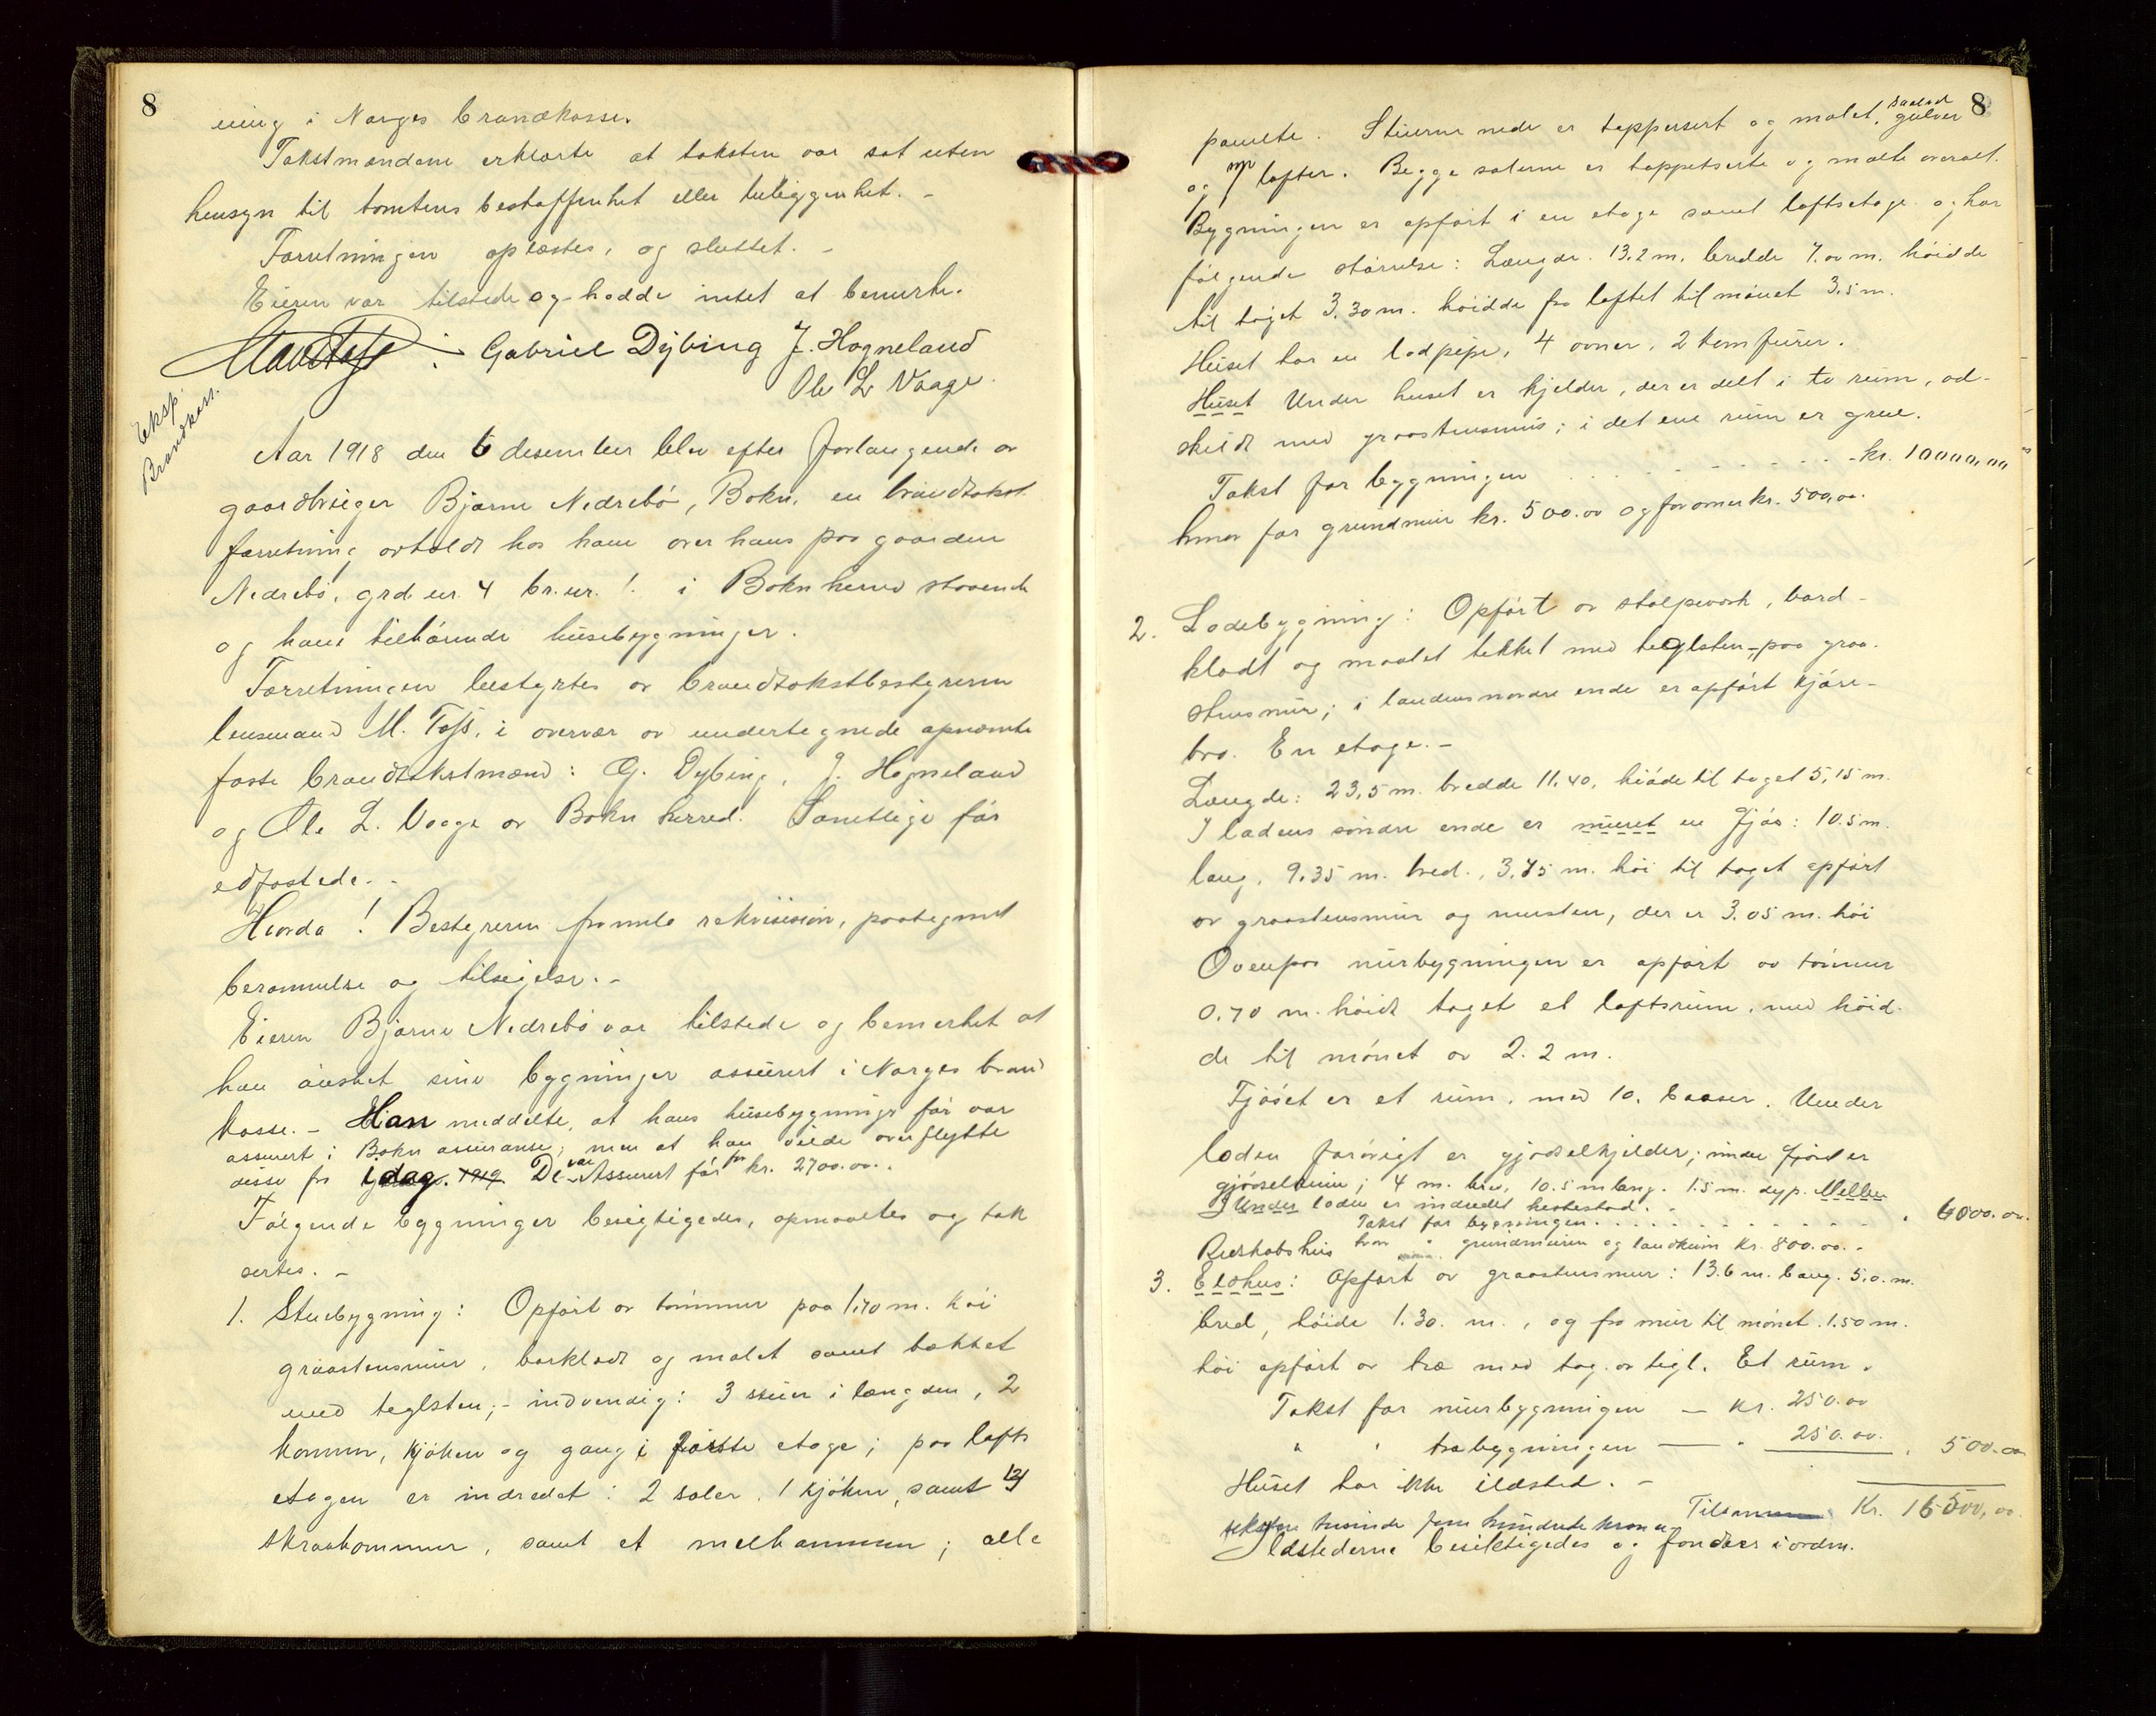 8
ning i Norges brandkasse.
Takstmændene erklærte at taksten var sat uten
hensyn til tomtens beskaffenhet eller beliggenhet. -
Forretningen oplæstes, og sluttet. -
Eieren var tilstede og hadde intet at bemerke.
Gabriel Dybing J. Hogneland
Ole L Vaage.
Eksp.
Brandkass.
Aar 1918 den 6 desember blev efter forlangende av
gaardbruger Bjarne Nedrebø, Bokn, en brandtakst
forretning avholdt hos ham over hans paa gaarden
Nedrebø, grd. nr. 4 br. nr. 1. i Bokn herred staaende
og ham tilhørende husebygninger.
Forretningen bestyrtes av brandtakstbestyreren
lensmand M. Toss, i overvær av undertegnede opnævnte
faste brandtakstmænd: G. Dybing, J. Hogneland
og Ole L. Vaage av Bokn herred. Samtlige før
edfæstede. -
Hvorda! Bestyreren fremla rekvisision, paategnet
berammelse og tilsigelse. -
Eieren Bjarne Nedrebø var tilstede og bemerket at
han ønsket sine bygninger assurert i Norges brand
kasse. - Han meddelte, at hans husebygninger før var
assurert i Bokn assuranse; men at han vilde overflytte
disse fra idag. 1919 De var Assurert før for kr. 2700.00. -
Følgende bygninger besigtigedes, opmaaltes og tak
sertes. -
1. Stuebygning: Opført av tømmer paa 1.70 m. høi
graastensmur, borklædt og malet samt tækket
med teglsten; - indvendig: 3 stuer i længden, 2
kammer, kjøken og gang i første etage; paa lofts
etagen er indredet: 2 saler, 1 kjøken, samt 3
skraakammer, samt et melkammer; alle
8
panelte. Stuerne nede er tappesert og malet, saavel gulver
og lofter. Begge salerne er tappetserte og malte overalt.
Bygningen er opført i en etage samt loftsetage og har
følgende størrelse: Længde 13.2 m. bredde 7.00 m. høidde
til taget 3.30 m. høidde fra loftet til mønet 3.5 m.
Huset har en lodpipe, 4 ovner, 2 komfurer.
Huset Under huset er kjelder, der er delt i to rum, ad-
skildt med graastensmur; i det ene rum er grue.
Takst for bygningen - - - kr. 10000,00
hvorav for grundmur kr. 500.00 og for ovner kr. 500,00.
2. Ladebygning: Opført av stolpeverk, bord-
klædt og maalet tekket med teglsten, - paa graa-
stensmur; i laadens nordre ende er opført kjøre-
bro. En etage. -
Længde: 23,5 m. bredde 11,40, høide til taget 5,15 m.
I ladens søndre ende er muret en fjøs: 10.5 m.
lang, 9.35 m. bred., 3,75 m. høi til taget opført
av graastensmur og mursten, der er 3.05 m. høi
Ovenpaa murbygningen er opført av tømmer
0.70 m. høidt taget et loftsrum, med høid-
de til mønet av 2.2 m.
Fjøset er et rum, med 10. baaser. Under
laden forøvrigt er gjødselkjelder; under fjøset er
gjødselrum; 4 m. bre, 10.5 m lang. 1.5 m. dyp. Mellem
Under laden er indredet hestestad. -
Takst for bygningen. - - - 6000.00.
Redskabshus hvorav grundmuren og landkum kr. 800.00. -
3. Eldhus: Opført av graastensmur: 13.6 m. lang. 5.0. m.
bred, høide 1.30. m., og fra mur til mønet. 1.50 m.
høi opført av træ med tag av tegl. Et rum.
Takst for murbygningen — kr. 250.00
" " træbygningen — " 250.00. " 500.00
Huset har ikke ildsted. -
Tilsammen Kr. 16500,00.
seksten tusinde fem hundrede kroner
Ildstederne besiktigedes og fandtes i orden.